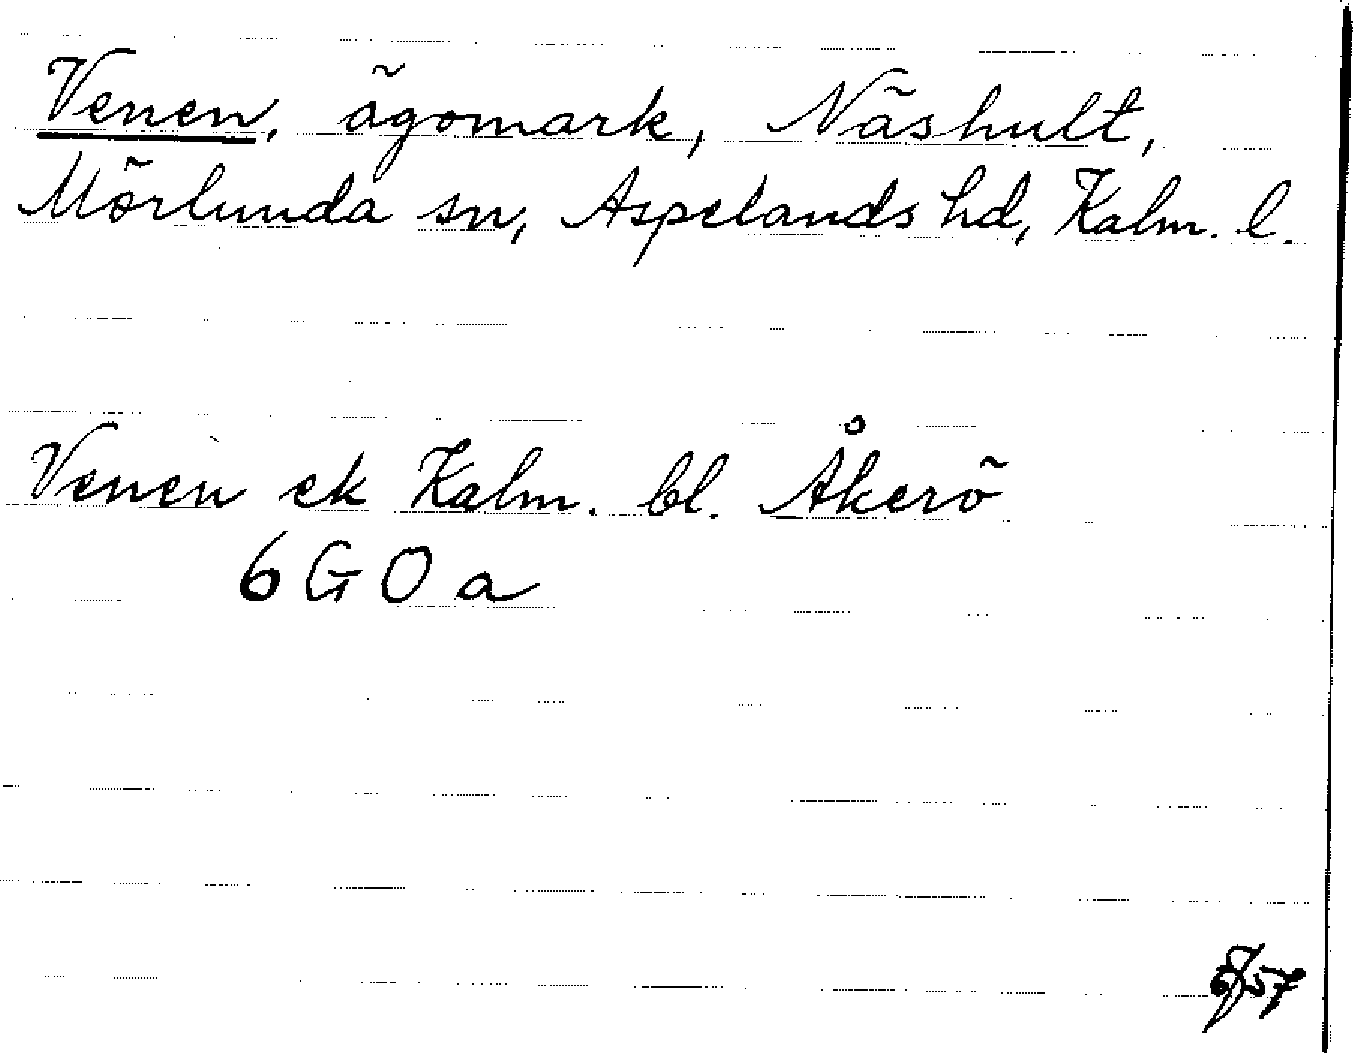 Venen, ägomark, Näshult,
Mörlunda sn, Aspelands hd, Kalm. l.
Venen ek Kalm. bl. Åkerö
6 G O a